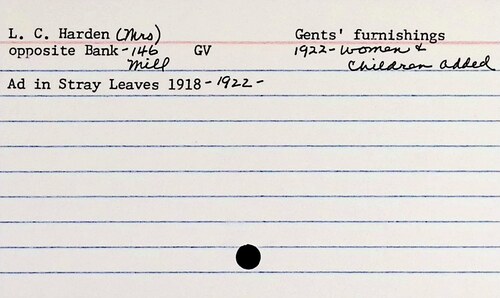 L. C. Harden (Mrs) Gents' furnishings
opposite Bank - 146 GV 1922 - women &
Mill children added
Ad in Stray Leaves 1918 - 1922 -